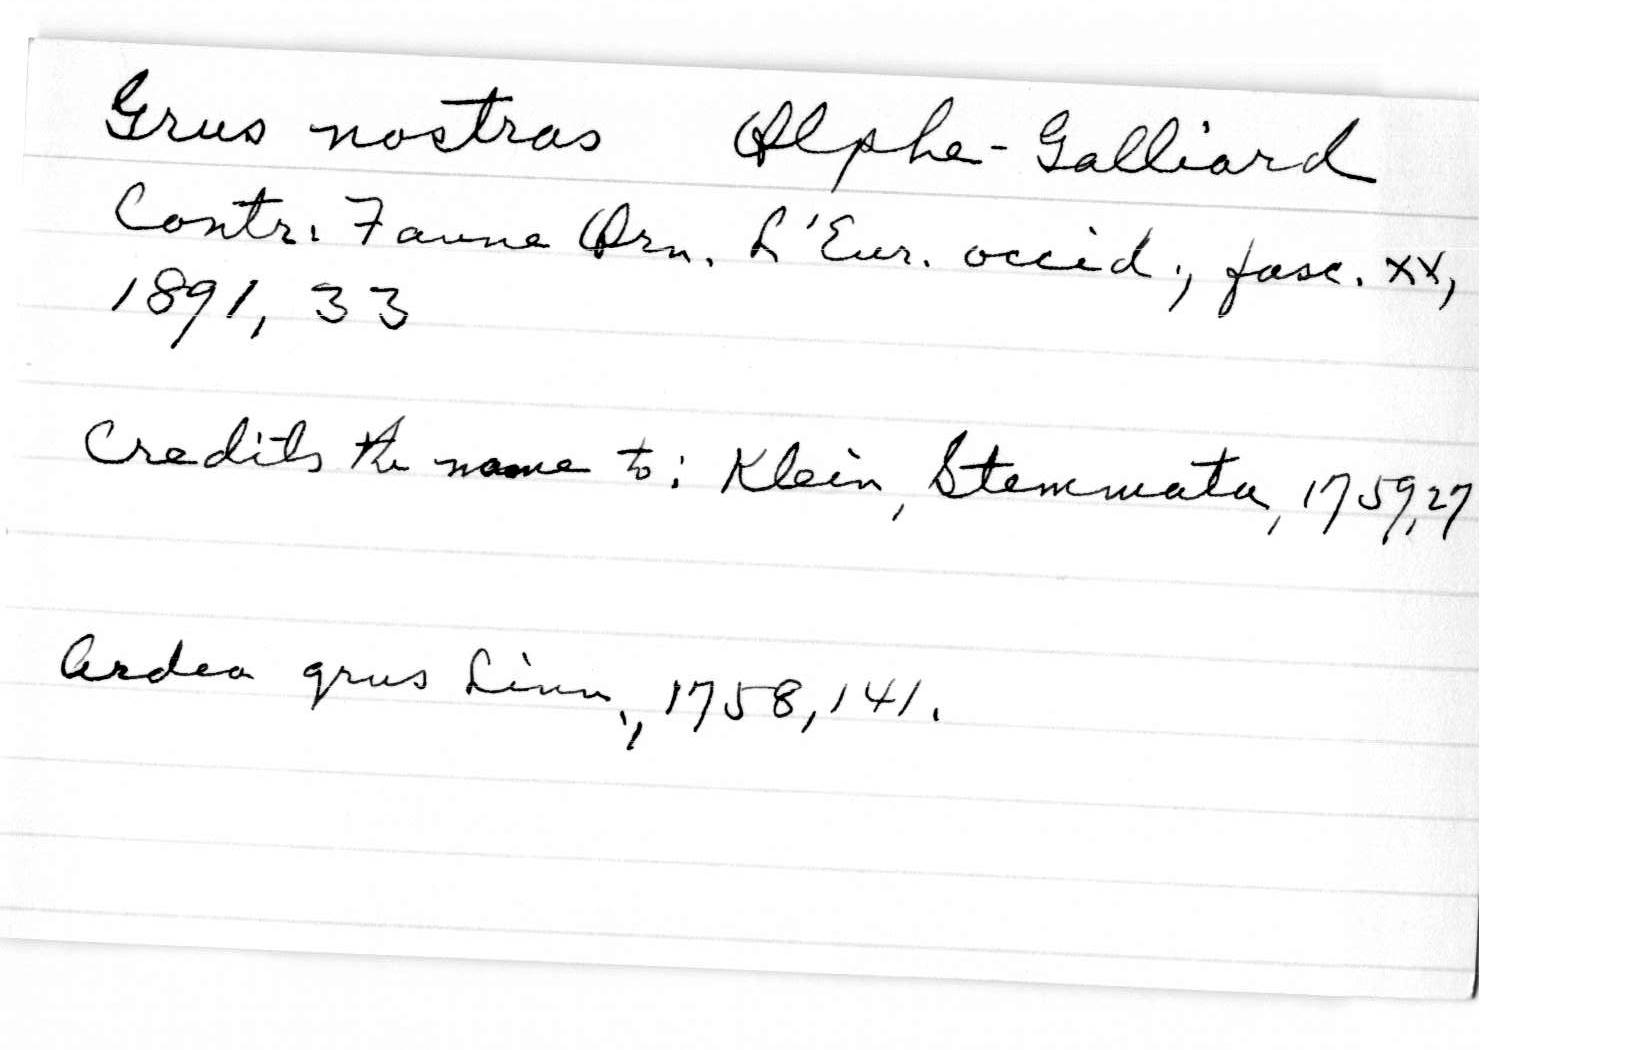 Grus nostras Alphe-Galliard
Contr. Faune Orn. L'Eur. occid., fasc. XX,
1891, 33
Credits the name to: Klein, Stemmata, 1759, 27
Ardea grus Linn., 1758, 141.